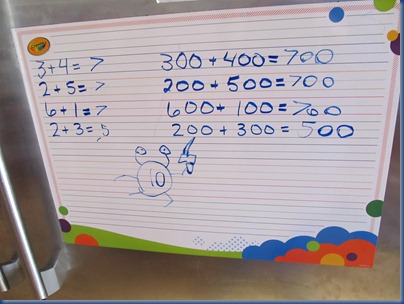 Crayola
3+4=7 300+400=700
2+5=7 200+500=700
6+1=7 600+100=700
2+3=5 200+300=500
10